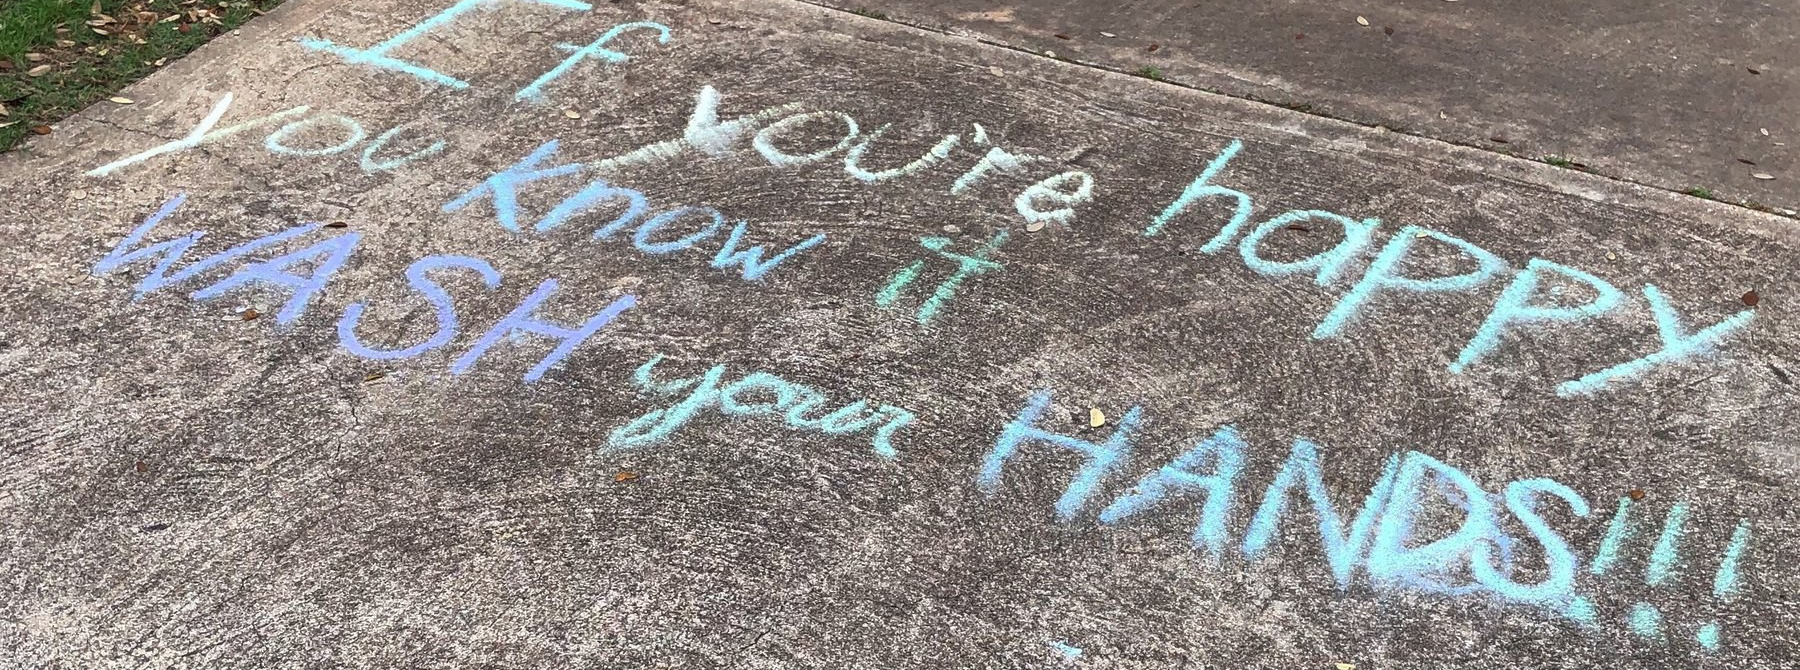 If you're happy
You know it
WASH your HANDS!!!